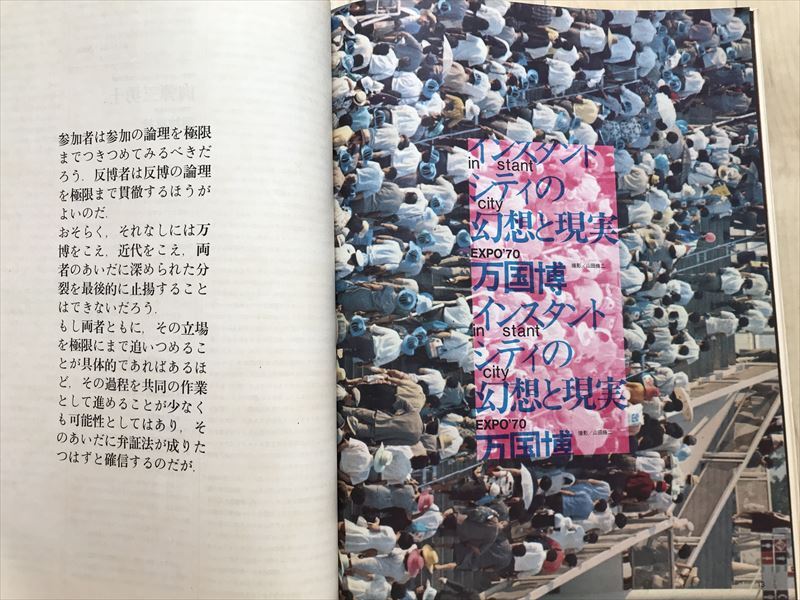 参加者は参加の論理を極限
までつきつめてみるべきだ
ろう．反博者は反博の論理
を極限まで貫徹するほうが
よいのだ．
おそらく，それなしには万
博をこえ，近代をこえ，両
者のあいだに深められた分
裂を最後的に止揚すること
はできないだろう．
もし両者ともに，その立場
を極限にまで追いつめるこ
とが具体的であればあるほ
ど，その過程を共同の作業
として進めることが少なく
も可能性としてはあり，そ
のあいだに弁証法が成りた
つはずと確信するのだが．
インスタント
in stant
シティの
city
幻想と現実
EXPO'70
万国博
撮影／山田脩二
インスタント
in stant
シティの
city
幻想と現実
EXPO'70
万国博
撮影／山田脩二